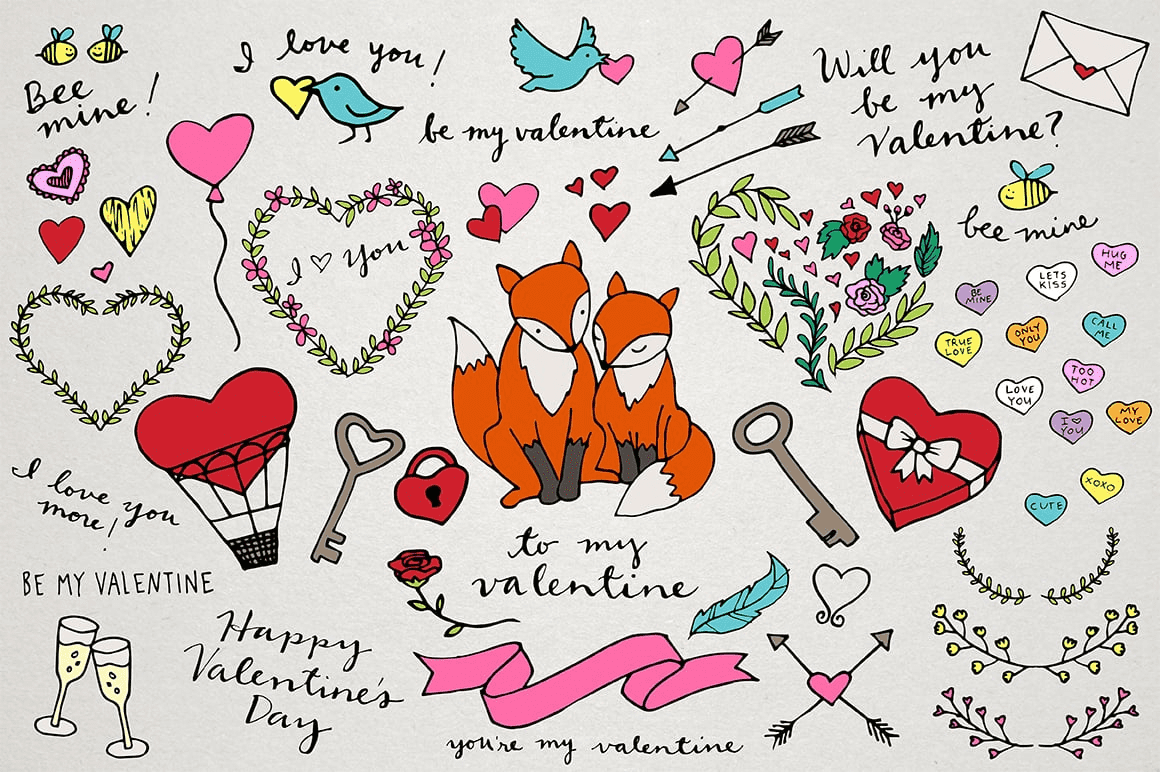 Bee
mine!
I love you!
be my valentine
Will you
be my
Valentine?
bee mine
I ♡ You
HUG
ME
LETS
KISS
BE
MINE
ONLY
YOU
CALL
ME
TRUE
LOVE
TOO
HOT
LOVE
YOU
I ♡
YOU
MY
LOVE
XOXO
CUTE
I love you
more!
BE MY VALENTINE
to my
valentine
Happy
Valentine's
Day
you're my valentine